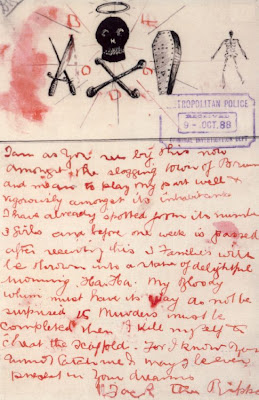 METROPOLITAN POLICE
RECEIVED
9-OCT.88
CRIMINAL INVESTIGATION DEPT
I am as you see by this now
amongst the slogging town of
and means to play my part well &
vigorously amongst its inhabitants
I have already spotted from its
3 girls and before one week is passed
after receiving this 3 Families will
be thrown into a state of delightful
mourning. Ha. Ha. My Bloody
whim must have its way do not be
surprised 15 Murders must be
completed then I kill myself to
cheat the scaffold. For I know you
cannot catch me & may be even
present in your dreams
Jack the Ripper